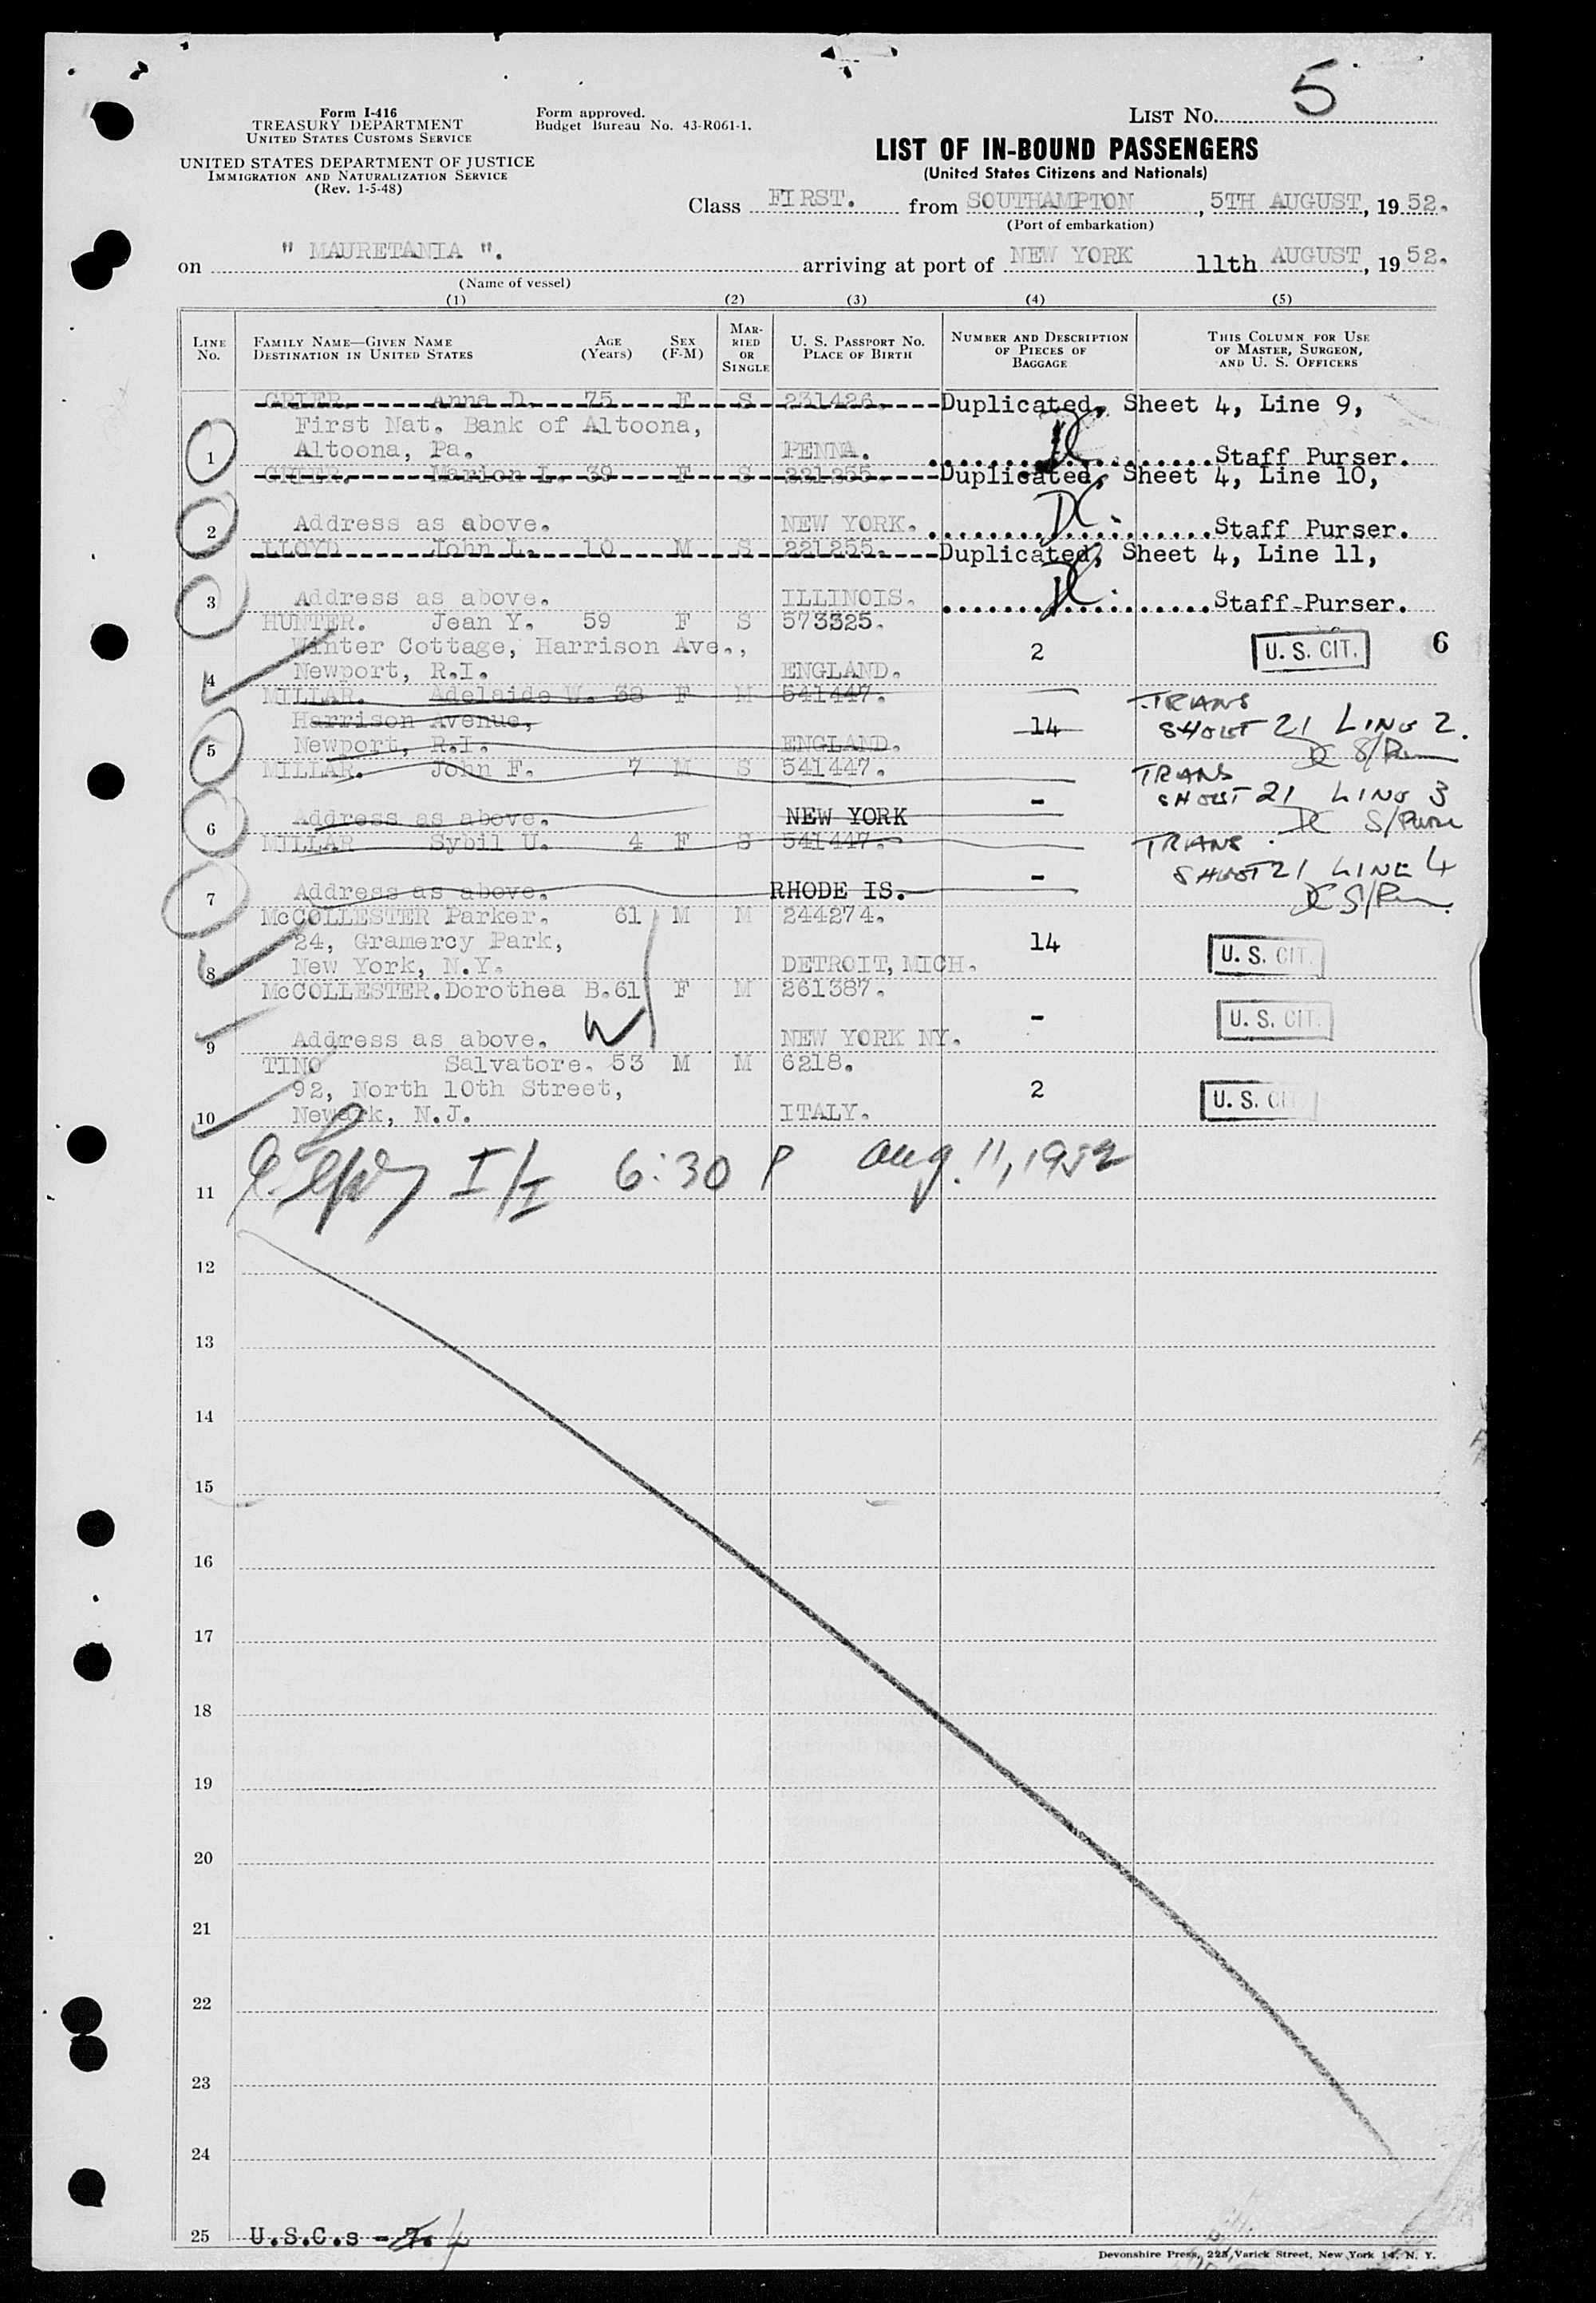 5
Form I-416
TREASURY DEPARTMENT
UNITED STATES CUSTOMS SERVICE
UNITED STATES DEPARTMENT OF JUSTICE
IMMIGRATION AND NATURALIZATION SERVICE
(Rev. 1-5-48)
Form approved.
Budget Bureau No. 43-R061-1.
LIST NO.
LIST OF IN-BOUND PASSENGERS
(United States Citizens and Nationals)
Class FIRST. from SOUTHAMPTON, 5TH AUGUST, 1952.
(Port of embarkation)
on " MAURETANIA ". arriving at port of NEW YORK 11th AUGUST, 1952.
(Name of vessel)
(1) (2) (3) (4) (5)
LINE NO. FAMILY NAME—GIVEN NAME DESTINATION IN UNITED STATES AGE (Years) SEX (F-M) MARRIED OR SINGLE U. S. PASSPORT NO. PLACE OF BIRTH NUMBER AND DESCRIPTION OF PIECES OF BAGGAGE THIS COLUMN FOR USE OF MASTER, SURGEON, AND U. S. OFFICERS
GRIER. Anna D. 75 F S 231426. Duplicated, Sheet 4, Line 9,
First Nat. Bank of Altoona,
1 Altoona, Pa. PENNA. DC Staff Purser.
GRIER. Marion L. 39 F S 221255. Duplicated, Sheet 4, Line 10,
2 Address as above. NEW YORK. DC Staff Purser.
LLOYD John L. 10 M S 221255. Duplicated, Sheet 4, Line 11,
3 Address as above. ILLINOIS. DC Staff-Purser.
HUNTER. Jean Y. 59 F S 573325.
Winter Cottage, Harrison Ave., 2 U. S. CIT. 6
4 Newport, R.I. ENGLAND.
MILLAR. Adelaide W. 38 F M 541447. TRANS
Harrison Avenue, 14 SHEET 21 LINE 2.
5 Newport, R.I. ENGLAND. DC S/Pur
MILLAR. John F. 7 M S 541447. TRANS
- SHEET 21 LINE 3
6 Address as above. NEW YORK DC S/Purser
MILLAR Sybil U. 4 F S 541447. TRANS.
- SHEET 21 LINE 4
7 Address as above. RHODE IS. DC S/Pur.
McCOLLESTER Parker. 61 M M 244274.
24, Gramercy Park, 14 U. S. CIT.
8 New York, N.Y. DETROIT, MICH.
McCOLLESTER. Dorothea B. 61 F M 261387.
- U. S. CIT.
9 Address as above. NEW YORK NY.
TINO Salvatore. 53 M M 6218.
92, North 10th Street, 2 U. S. CIT
10 Newark, N.J. ITALY.
I/I 6:30 P Aug. 11, 1952
11
12
13
14
15
16
17
18
19
20
21
22
23
24
25 U.S.C.s - 7. 4
Devonshire Press, 225 Varick Street, New York 14, N. Y.